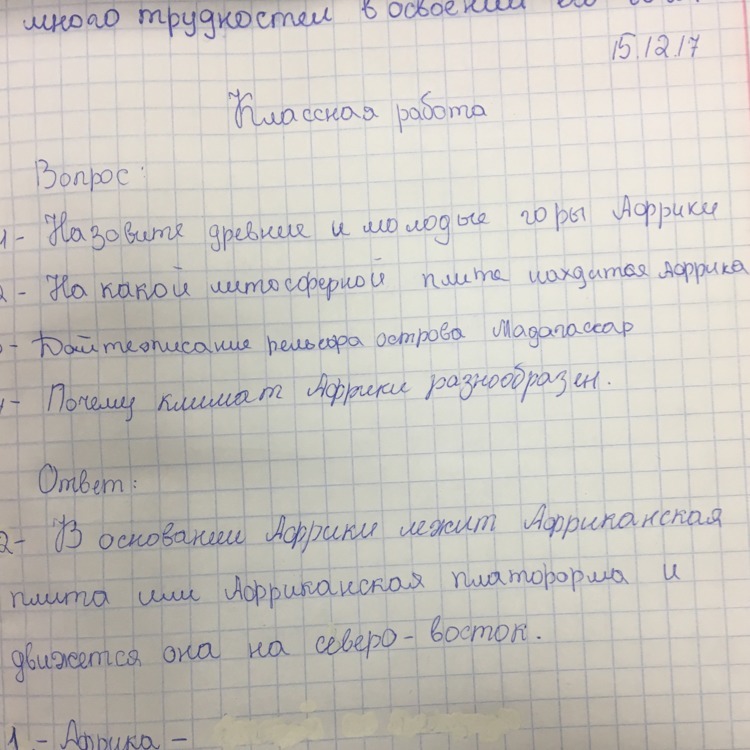 много трудностей в освоении
15.12.17
Классная работа
Вопрос:
1- Назовите древние и молодые горы Африки
2- На какой литосферной плите находится Африка
3- Дайте описание рельефа острова Мадагаскар
4- Почему климат Африки разнообразен.
Ответ:
2- В основании Африки лежит Африканская
плита или Африканская платформа и
движется она на северо-восток.
1 - Африка -